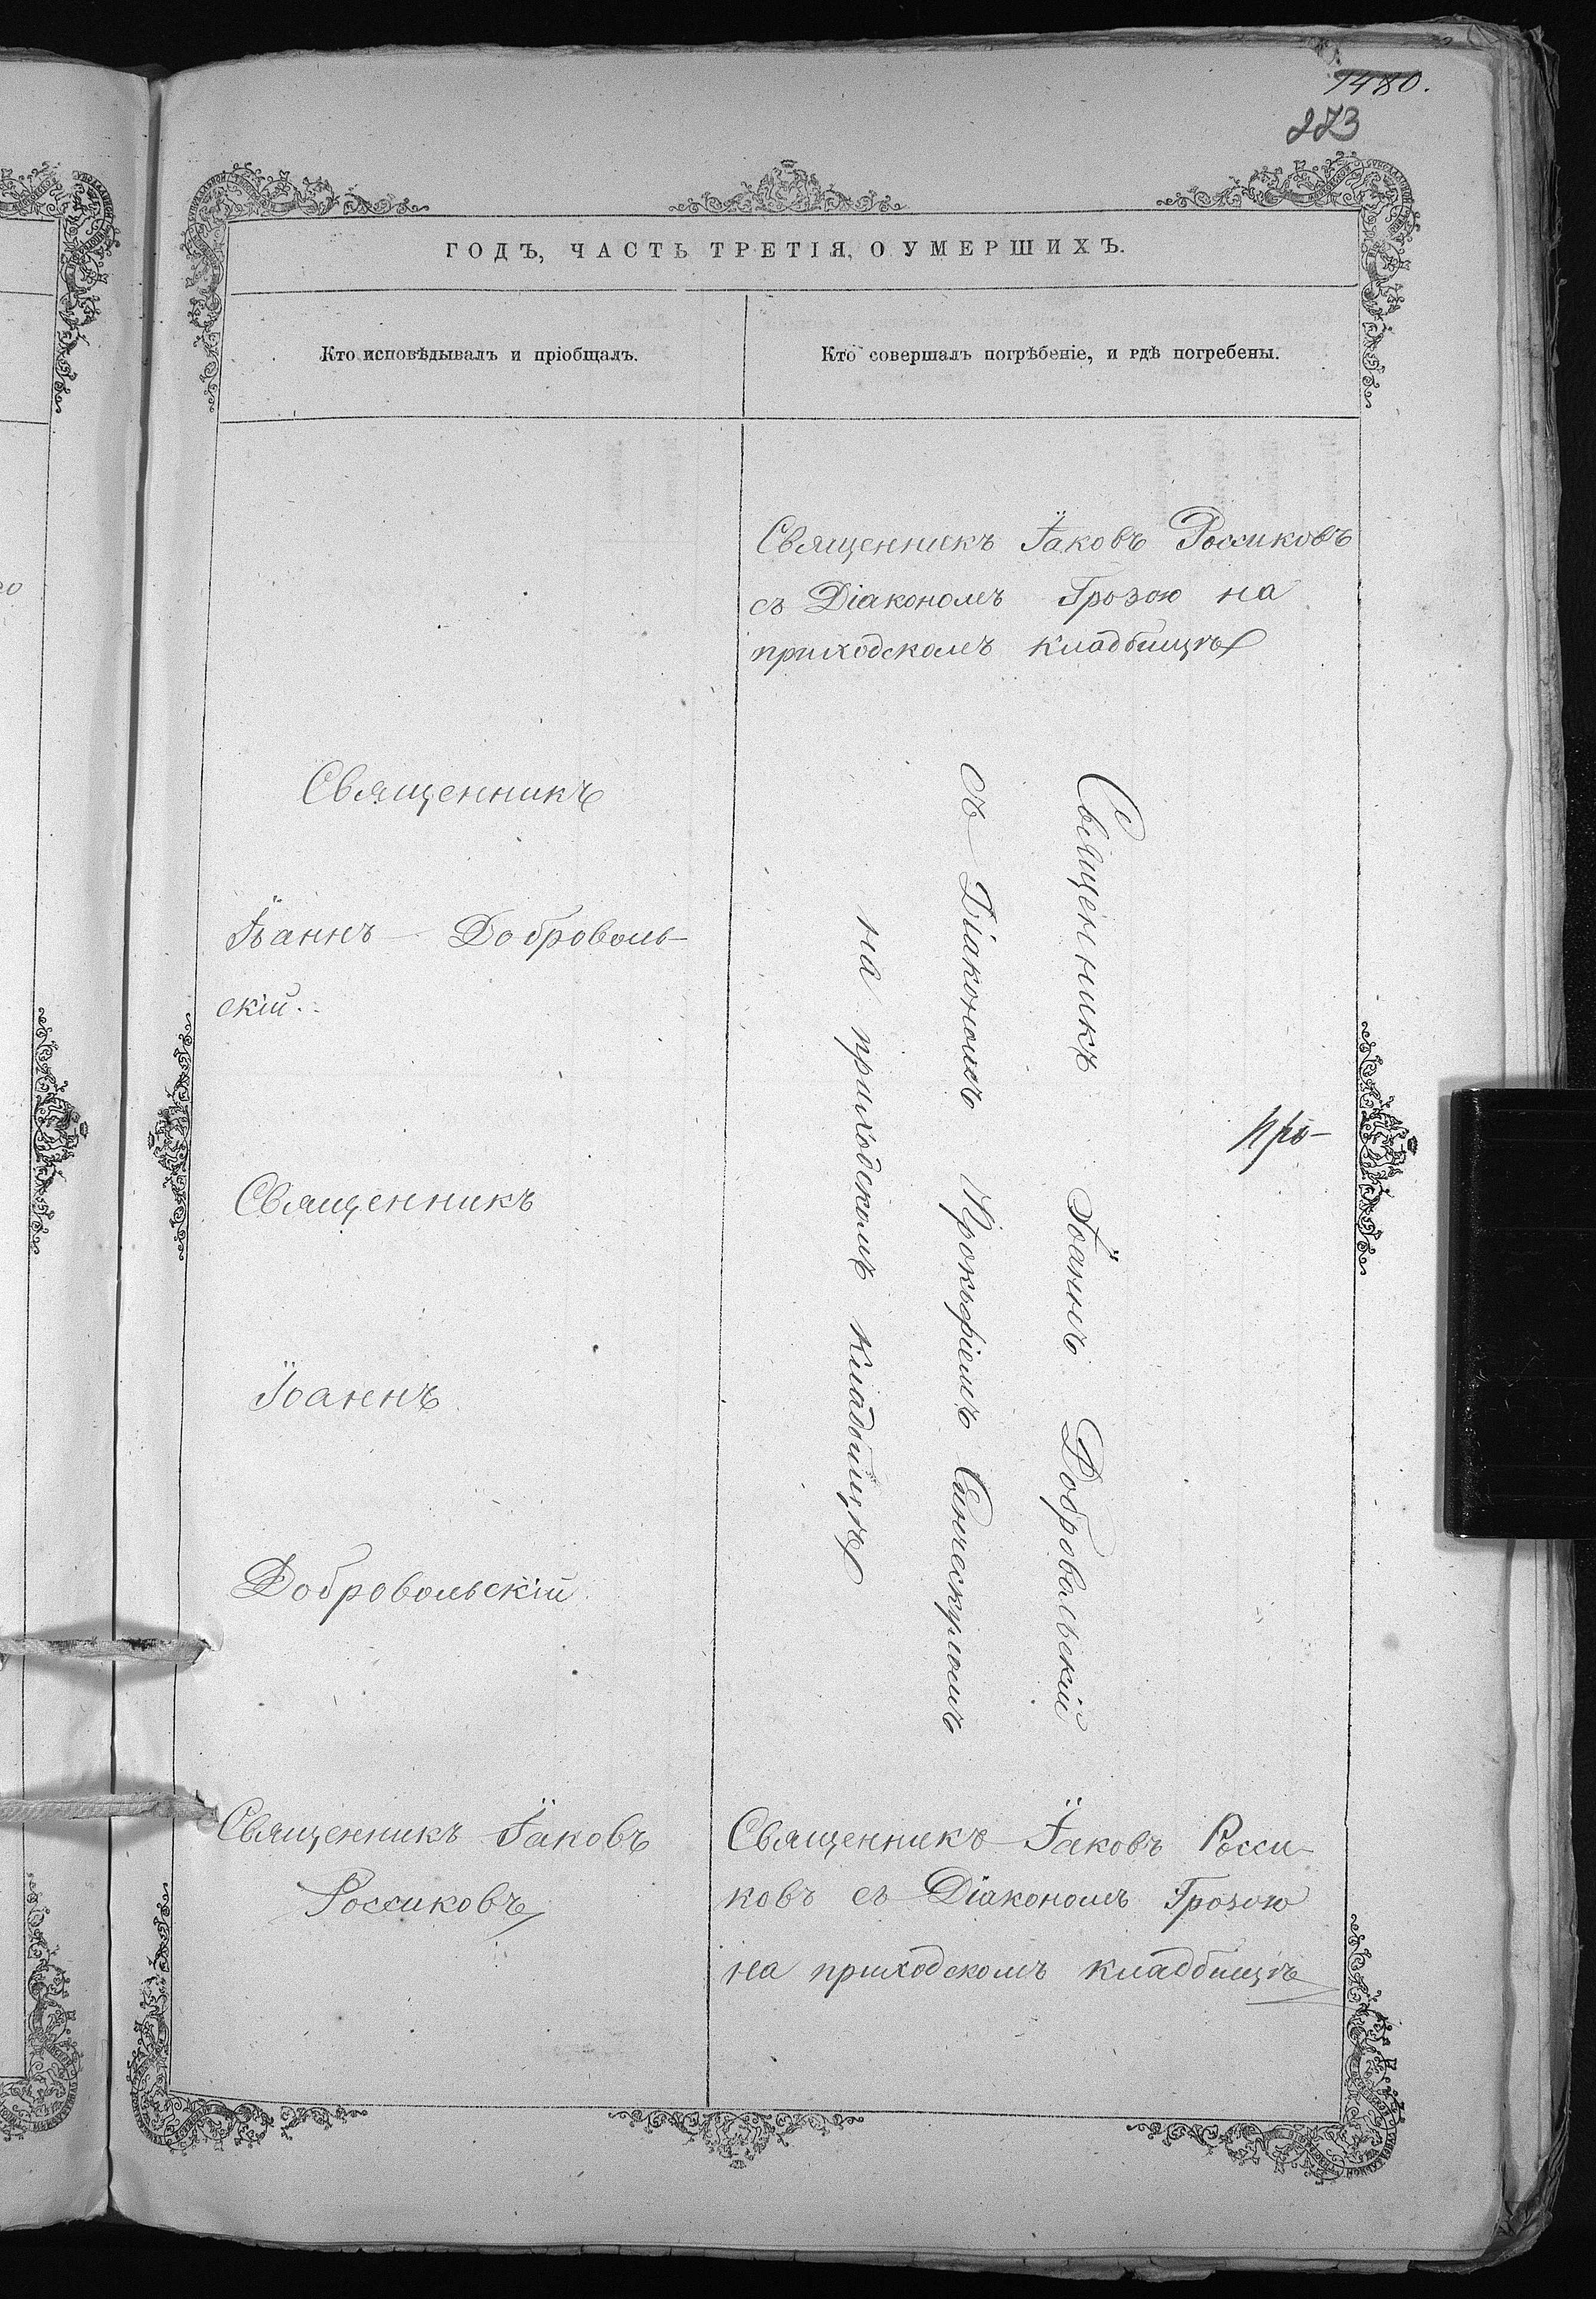 1480.
273
ГОДЪ, ЧАСТЬ ТРЕТІЯ, О УМЕРШИХЪ.
Кто исповѣдывалъ и пріобщалъ.
Кто совершалъ погребеніе, и гдѣ погребены.
Священникъ Іаковъ Россиковъ
съ Діакономъ Грозою на
приходскомъ кладбищѣ
Священникъ
Іоаннъ Доброволь-
скій.
Священникъ
Іоаннъ
Добровольскій
Священникъ Іоаннъ Добровольскій
съ Діакономъ Прокофіемъ
на приходскомъ кладбищѣ
Священникъ Іаковъ
Россиковъ
Священникъ Іаковъ Росси-
ковъ съ Діакономъ Грозою
на приходскомъ кладбищѣ